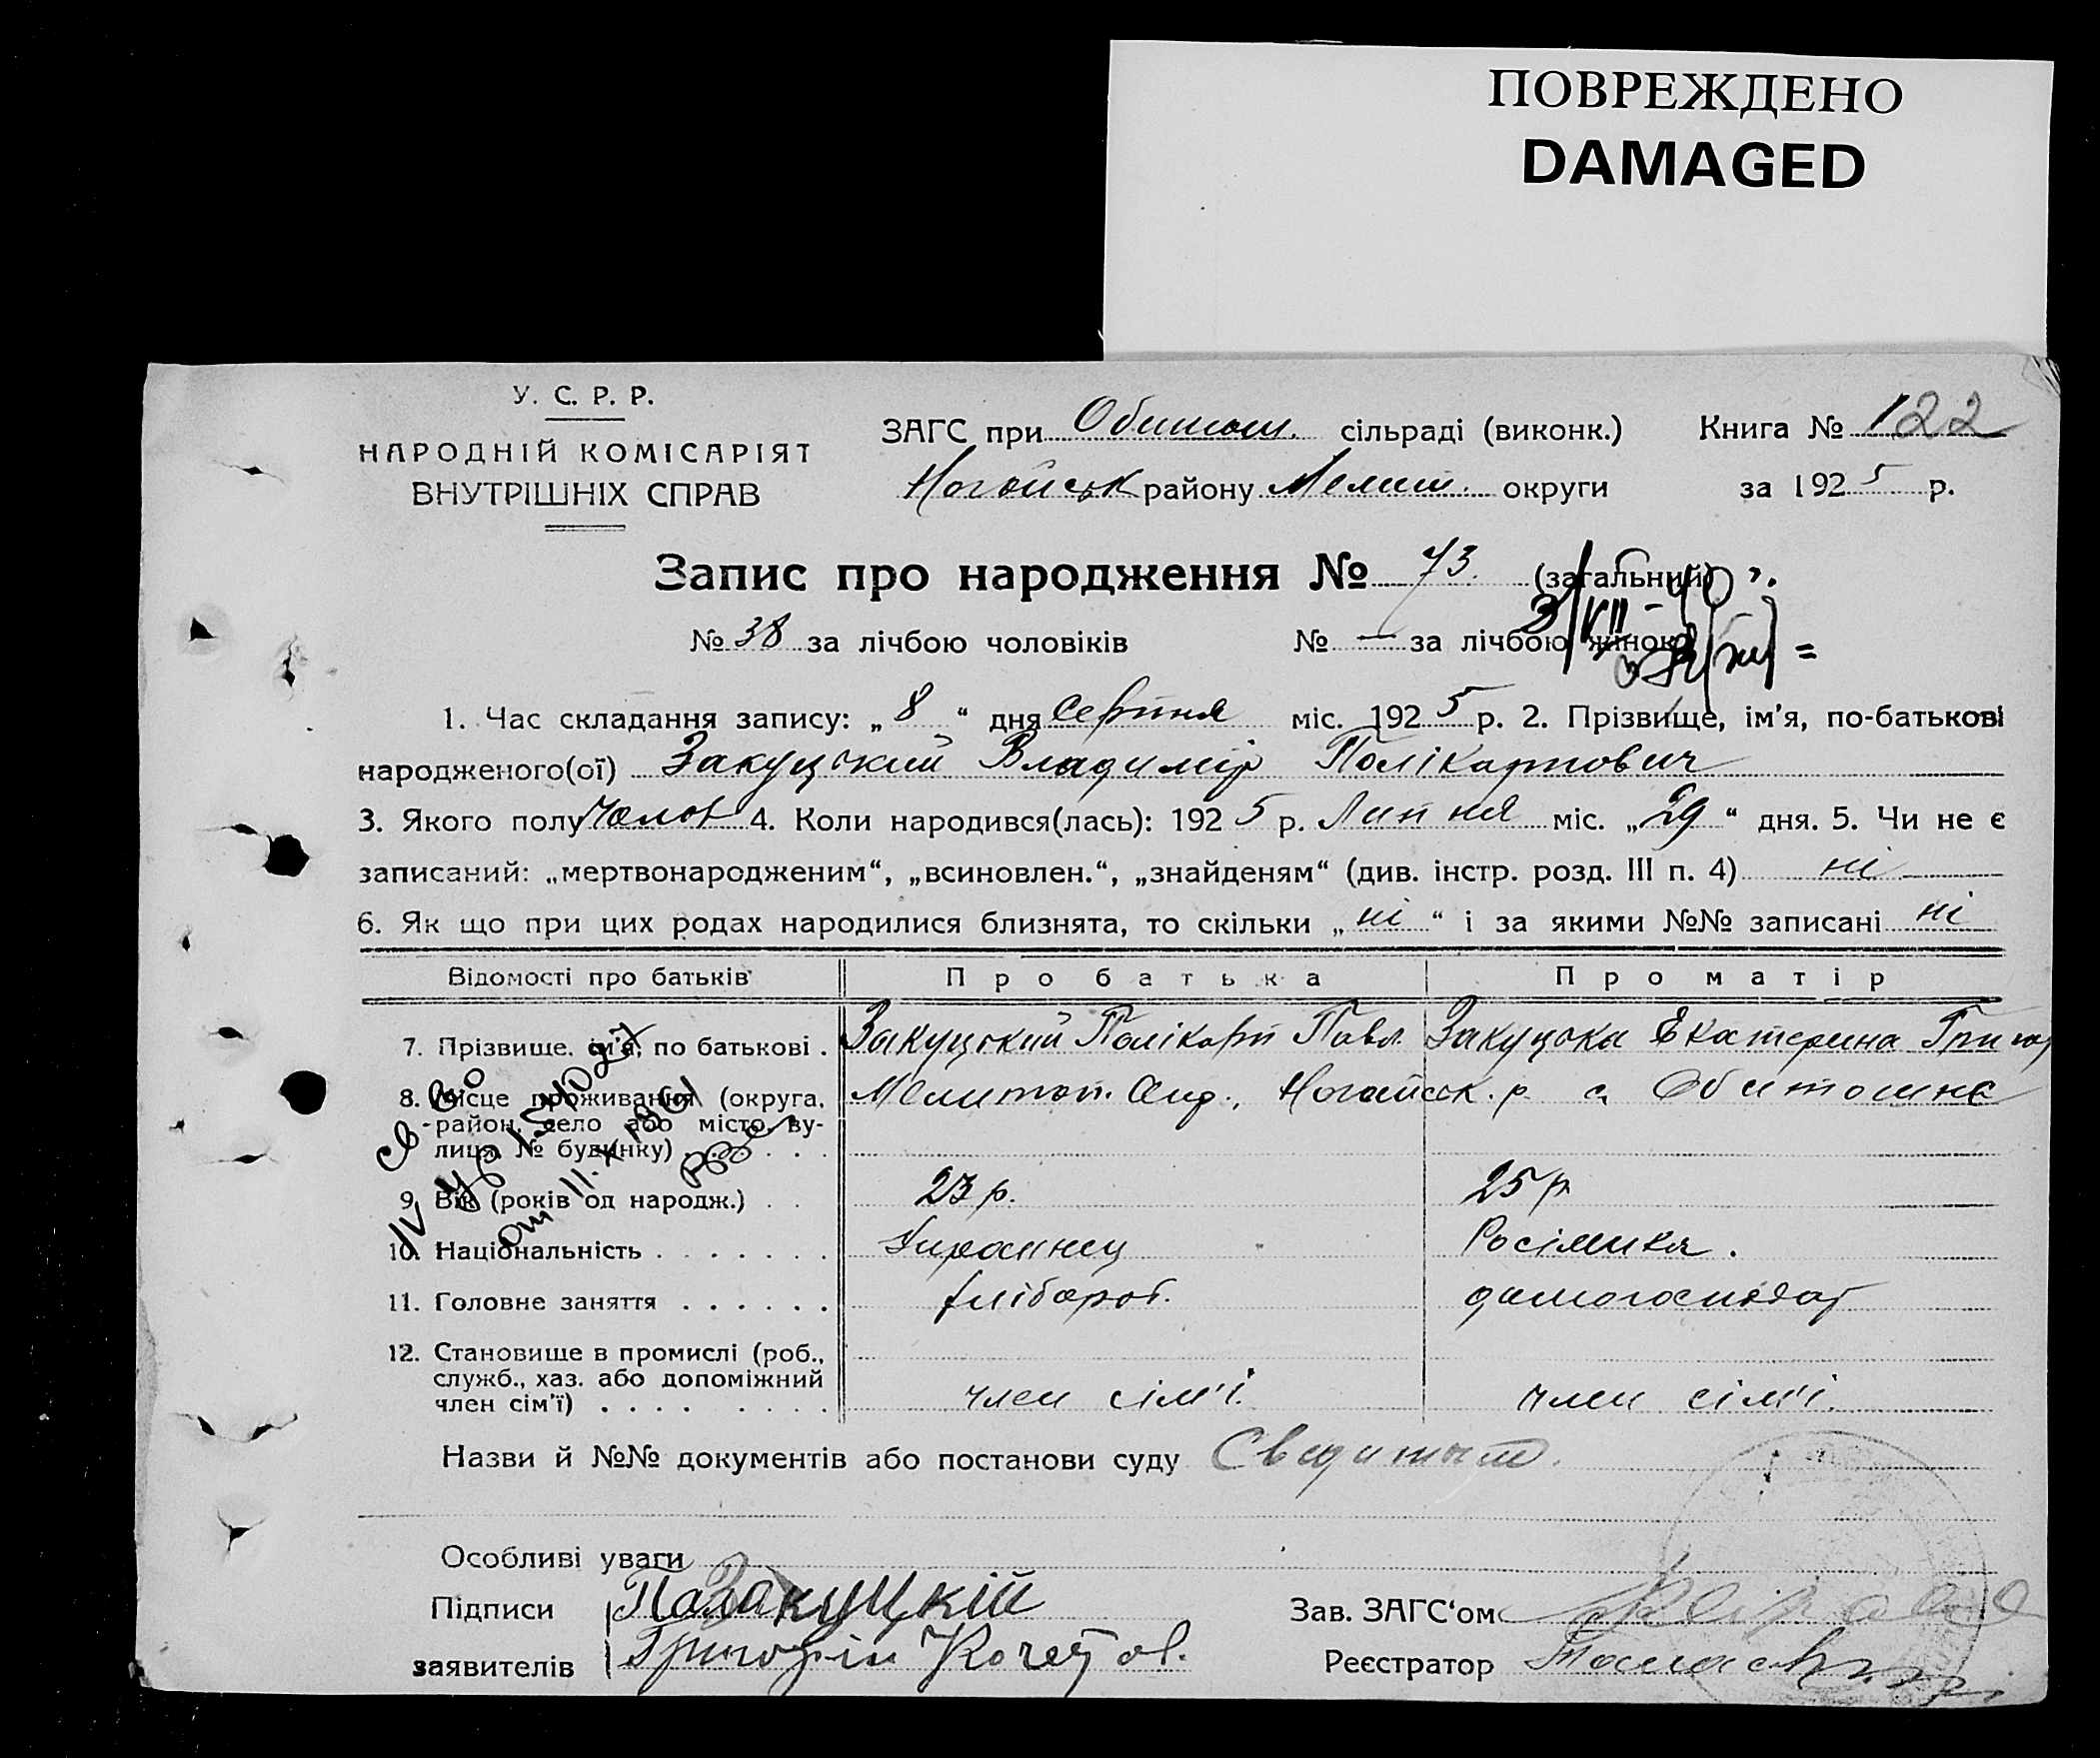 ПОВРЕЖДЕНО
DAMAGED
У. С. Р. Р.
НАРОДНІЙ КОМІСАРІЯТ
ВНУТРІШНІХ СПРАВ
ЗАГС при Обиточ. сільраді (виконк.) Книга № 122
Ногайськ району Мелит. округи за 1925 р.
Запис про народження № 73. (загальний)
№ 38 за лічбою чоловіків № — за лічбою жінок
3/VII-40
1. Час складання запису: „8“ дня серпня міс. 1925 р. 2. Прізвище, ім’я, по-батькові
народженого(ої) Закуцький Владимір Полікарпович
3. Якого полу Чолов 4. Коли народився(лась): 1925 р. Липня міс. „29“ дня. 5. Чи не є
записаний: „мертвонародженим“, „всиновлен.“, „знайденям“ (див. інстр. розд. III п. 4) ні
6. Як що при цих родах народилися близнята, то скільки „ні“ і за якими №№ записані ні
Відомості про батьків Про батька Про матір
7. Прізвище. ім’я, по батькові . Закуцький Полікарп Павл. Закуцька Екатерина Григор
8. Місце проживання (округа, Мелитоп. Окр., Ногайськ. р. с. Обиточне
район, село або місто, ву-
лиця, № будинку) . . . .
9. Вік (років од народж.) . . 23 р. 25 р
10. Національність . . . . . . . Українец Росіянка.
11. Головне заняття . . . . . . хлібороб. домогосподар
12. Становище в промислі (роб.,
служб., хаз. або допоміжний
член сім’ї) . . . . . . . . член сім'ї. член сім'ї.
св-во
от 11.X 1961
Назви й №№ документів або постанови суду
Особливі уваги
Підписи Закуцкій Зав. ЗАГС‘ом
заявителів Григорій Кочетов. Реєстратор